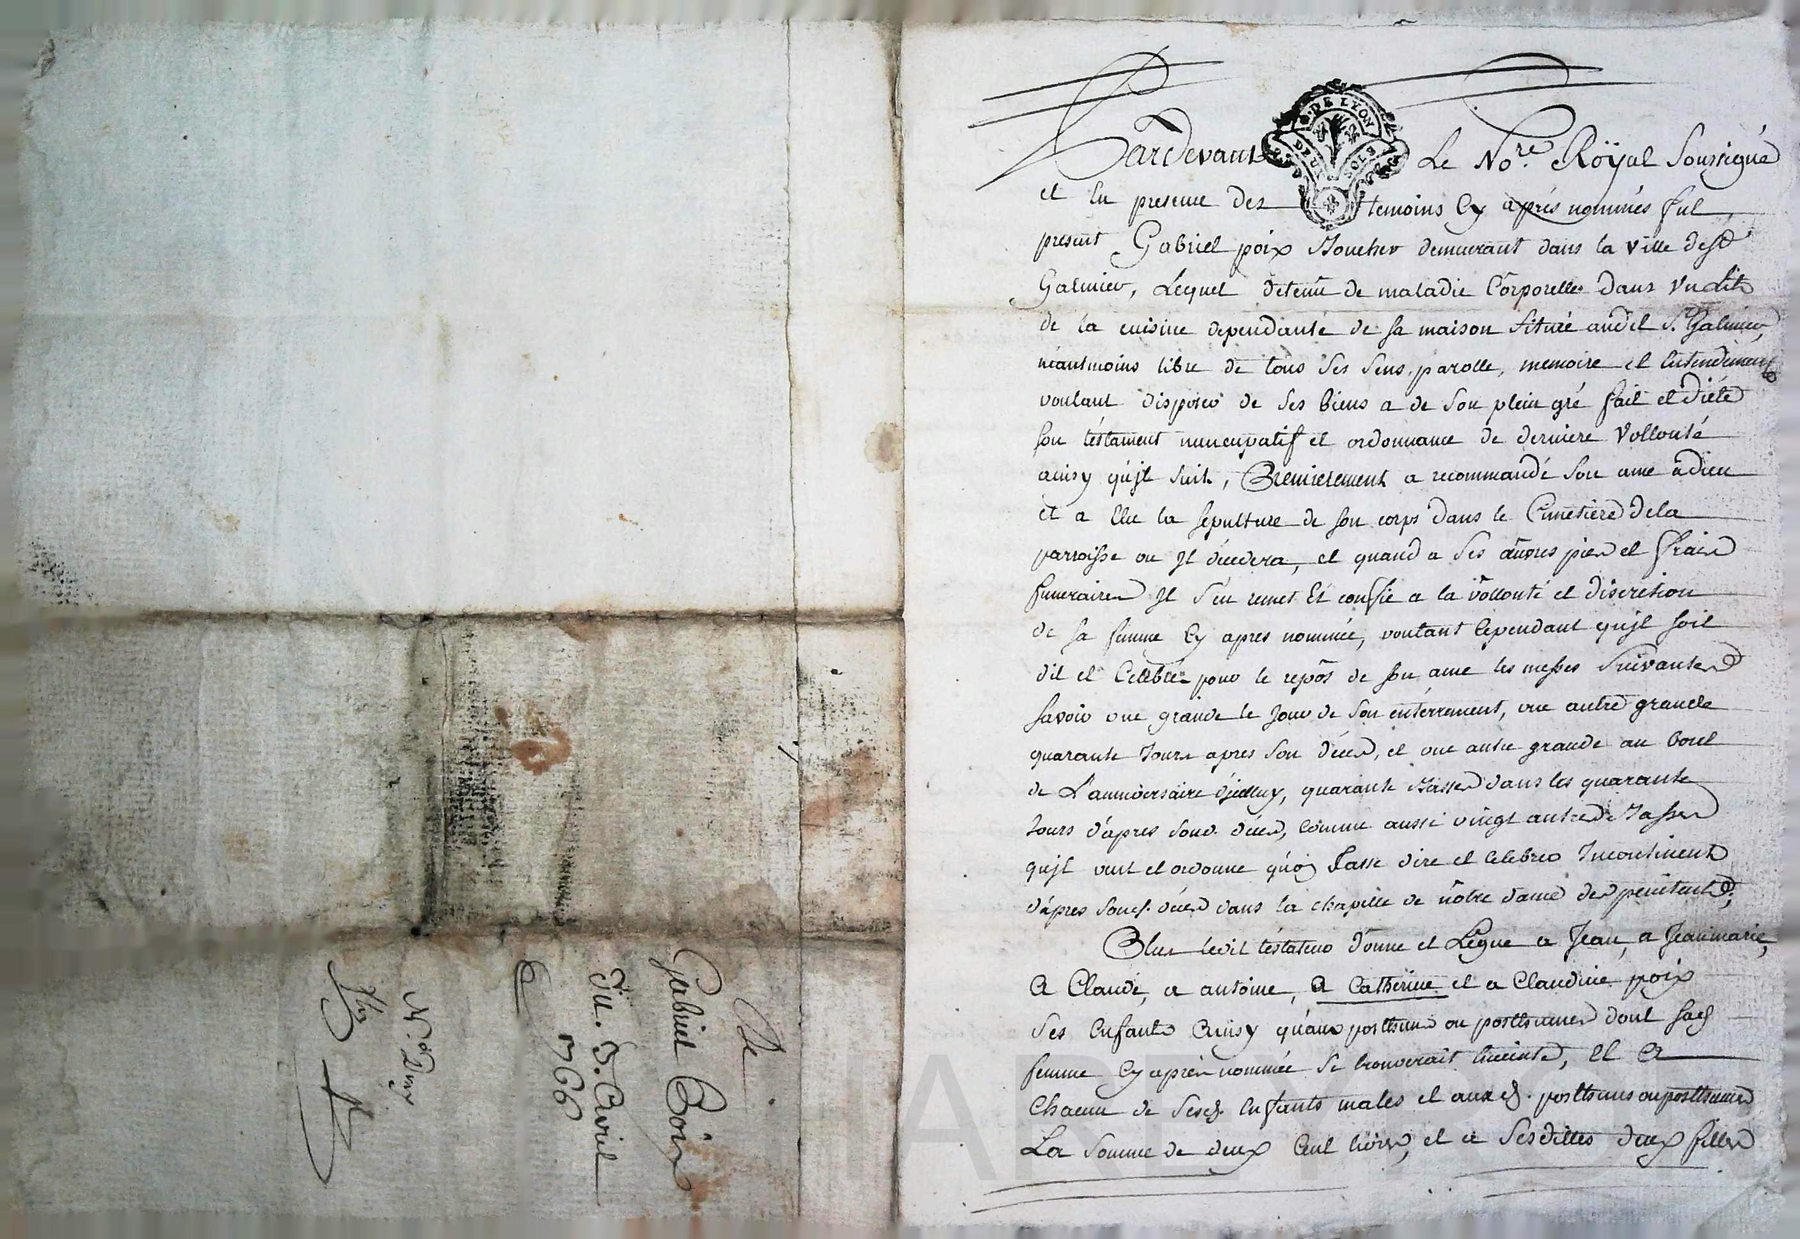 De
Gabriel Poix
Du. 3. Avril
1766
Pardevant Le No.re Röyal Soussigné
DE LYON
DEUX SOLS
et En presence des temoins Cy aprés nommés fut
present Gabriel poix Boucher demeurant dans la ville de St
Galmier, Lequel detenu de maladie Corporelle dans un Lit
de la cuisine dependante de sa maison situeé audit St. Galmier,
neantmoins libre de tous ses sens, parolle, memoire et Entendement
voulant disposer de ses biens a de son plein gré fait et dicté
son téstament nuncupatif et ordonnance de derniere Vollonté
ainsy qu'jl suit, Premierement a recommandé son ame a dieu
et a Elu la sepulture de son corps dans le Cimetiere de la
parroisse ou Jl decedera, et quand a ses œuvres pies et frais
funeraires Jl s'en remet Et confie a la vollonté et discretion
de sa femme Cy apres nommée, voulant Cependant qu'jl soit
dit et Celebré pour le repos de son ame les messes suivantes
savoir une grande le Jour de son enterrement, une autre grande
quarante Jours apres son décès, et une autre grande au bout
de L'anniversaire d'jcelluy, quarante Basses dans les quarante
Jours d'apres sond. décès, comme aussi vingt autres Basses
qu'jl veut et ordonne qu'on fasse dire et celebrer Jncontinent
d'apres sond. décès dans la chapelle de nôtre dame des penitents,
Plus ledit téstateur donne et Légue a Jean, a Jean marie,
a Claude, a antoine, a Catherine et a Claudine poix
ses Enfants Ainsy qu'aux posthume ou posthumes dont sad.
femme Cy aprés nommée se trouverait Enceinte, Et a
Chacun de sesd. Enfants males et auxd. posthumes ou posthume
La somme de deux Cent livres, et a sesdittes deux filles